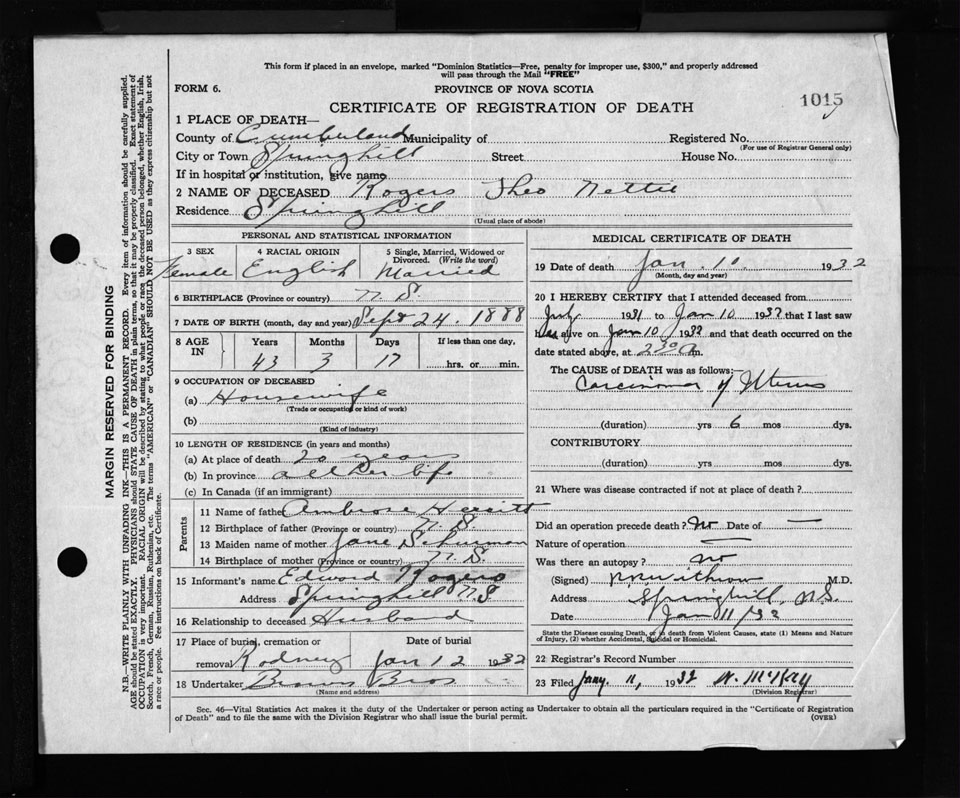 This form if placed in an envelope, marked "Dominion Statistics—Free, penalty for improper use, $300," and properly addressed
will pass through the Mail "FREE"
FORM 6. PROVINCE OF NOVA SCOTIA
CERTIFICATE OF REGISTRATION OF DEATH 1015
1 PLACE OF DEATH—
County of Cumberland Municipality of Registered No.
(For use of Registrar General only)
City or Town Springhill Street House No.
If in hospital or institution, give name
2 NAME OF DECEASED Rogers Theo Nettie
Residence Springhill
(Usual place of abode)
PERSONAL AND STATISTICAL INFORMATION
3 SEX 4 RACIAL ORIGIN 5 Single, Married, Widowed or
Divorced. (Write the word)
Female English Married
6 BIRTHPLACE (Province or country) N.S.
7 DATE OF BIRTH (month, day and year) Sept 24. 1888
8 AGE IN Years Months Days If less than one day,
43 3 17 hrs. or min.
9 OCCUPATION OF DECEASED
(a) Housewife
(Trade or occupation or kind of work)
(b)
(Kind of industry)
10 LENGTH OF RESIDENCE (in years and months)
(a) At place of death 20 years
(b) In province all her life
(c) In Canada (if an immigrant)
Parents
11 Name of father Ambrose
12 Birthplace of father (Province or country) N.S.
13 Maiden name of mother Jane Schurman
14 Birthplace of mother (Province or country) N.S.
15 Informant's name Edward Rogers
Address Springhill N.S.
16 Relationship to deceased Husband
17 Place of burial, cremation or Date of burial
removal Rodney Jan 12 1932
18 Undertaker Brown Bros
(Name and address)
MEDICAL CERTIFICATE OF DEATH
19 Date of death Jan. 10 1932
(Month, day and year)
20 I HEREBY CERTIFY that I attended deceased from
July 1931 to Jan 10 1932 that I last saw
her alive on Jan 10 1932 and that death occurred on the
date stated above, at 2 30 A m.
The CAUSE of DEATH was as follows:
Carcinoma of Uterus
(duration) yrs 6 mos dys.
CONTRIBUTORY.
(duration) yrs. mos. dys.
21 Where was disease contracted if not at place of death?
Did an operation precede death? No Date of —
Nature of operation —
Was there an autopsy? no
(Signed) M.D.
Address Springhill, N.S.
Date Jan 11/32
State the Disease causing Death, or in death from Violent Causes, state (1) Means and Nature
of Injury, (2) whether Accidental, Suicidal or Homicidal.
22 Registrar's Record Number
23 Filed Jany. 11, 1932 W. McKay
(Division Registrar)
Sec. 46—Vital Statistics Act makes it the duty of the Undertaker or person acting as Undertaker to obtain all the particulars required in the "Certificate of Registration
of Death" and to file the same with the Division Registrar who shall issue the burial permit. (OVER)
MARGIN RESERVED FOR BINDING
N.B.—WRITE PLAINLY WITH UNFADING INK—THIS IS A PERMANENT RECORD. Every item of information should be carefully supplied.
AGE should be stated EXACTLY. PHYSICIANS should STATE CAUSE OF DEATH in plain terms, so that it may be properly classified. Exact statement of
OCCUPATION is very important. RACIAL ORIGIN will be described by stating to what people or race the deceased person belonged, whether English, Irish,
Scotch, French, German, Russian, Ruthenian, etc. The terms "AMERICAN" or "CANADIAN" SHOULD NOT BE USED as they express citizenship but not
a race or people. See instructions on back of Certificate.